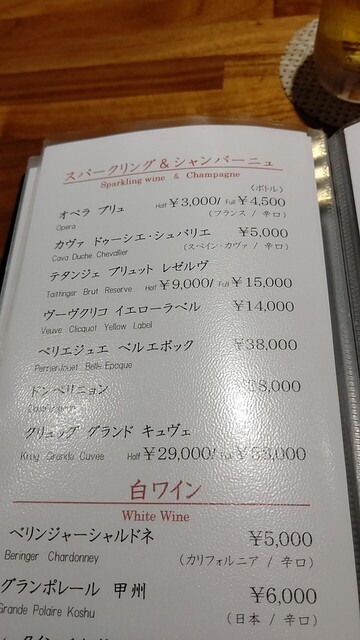 スパークリング＆シャンパーニュ
Sparkling wine & Champagne
（ボトル）
オペラ ブリュ Half ¥3,000/ Full ¥4,500
Opera （フランス / 辛口）
カヴァ ドゥーシエ・シュバリエ ¥5,000
Cava Duche Chevallier （スペイン・カヴァ / 辛口）
テタンジェ ブリュット レゼルヴ
Taittinger Brut Reserve Half ¥9,000/ Full ¥15,000
ヴーヴクリコ イエローラベル ¥14,000
Veuve Clicquot Yellow Label
ベリエジュエ ベルエポック ¥38,000
PerrierJouet Belle Epoque
ドンペリニョン
クリュッグ グランド キュヴェ
Krug Grande Cuvee Half ¥29,000/
白ワイン
White Wine
ベリンジャーシャルドネ ¥5,000
Beringer Chardonney （カリフォルニア / 辛口）
グランポレール 甲州 ¥6,000
Grande Polaire Koshu （日本 / 辛口）